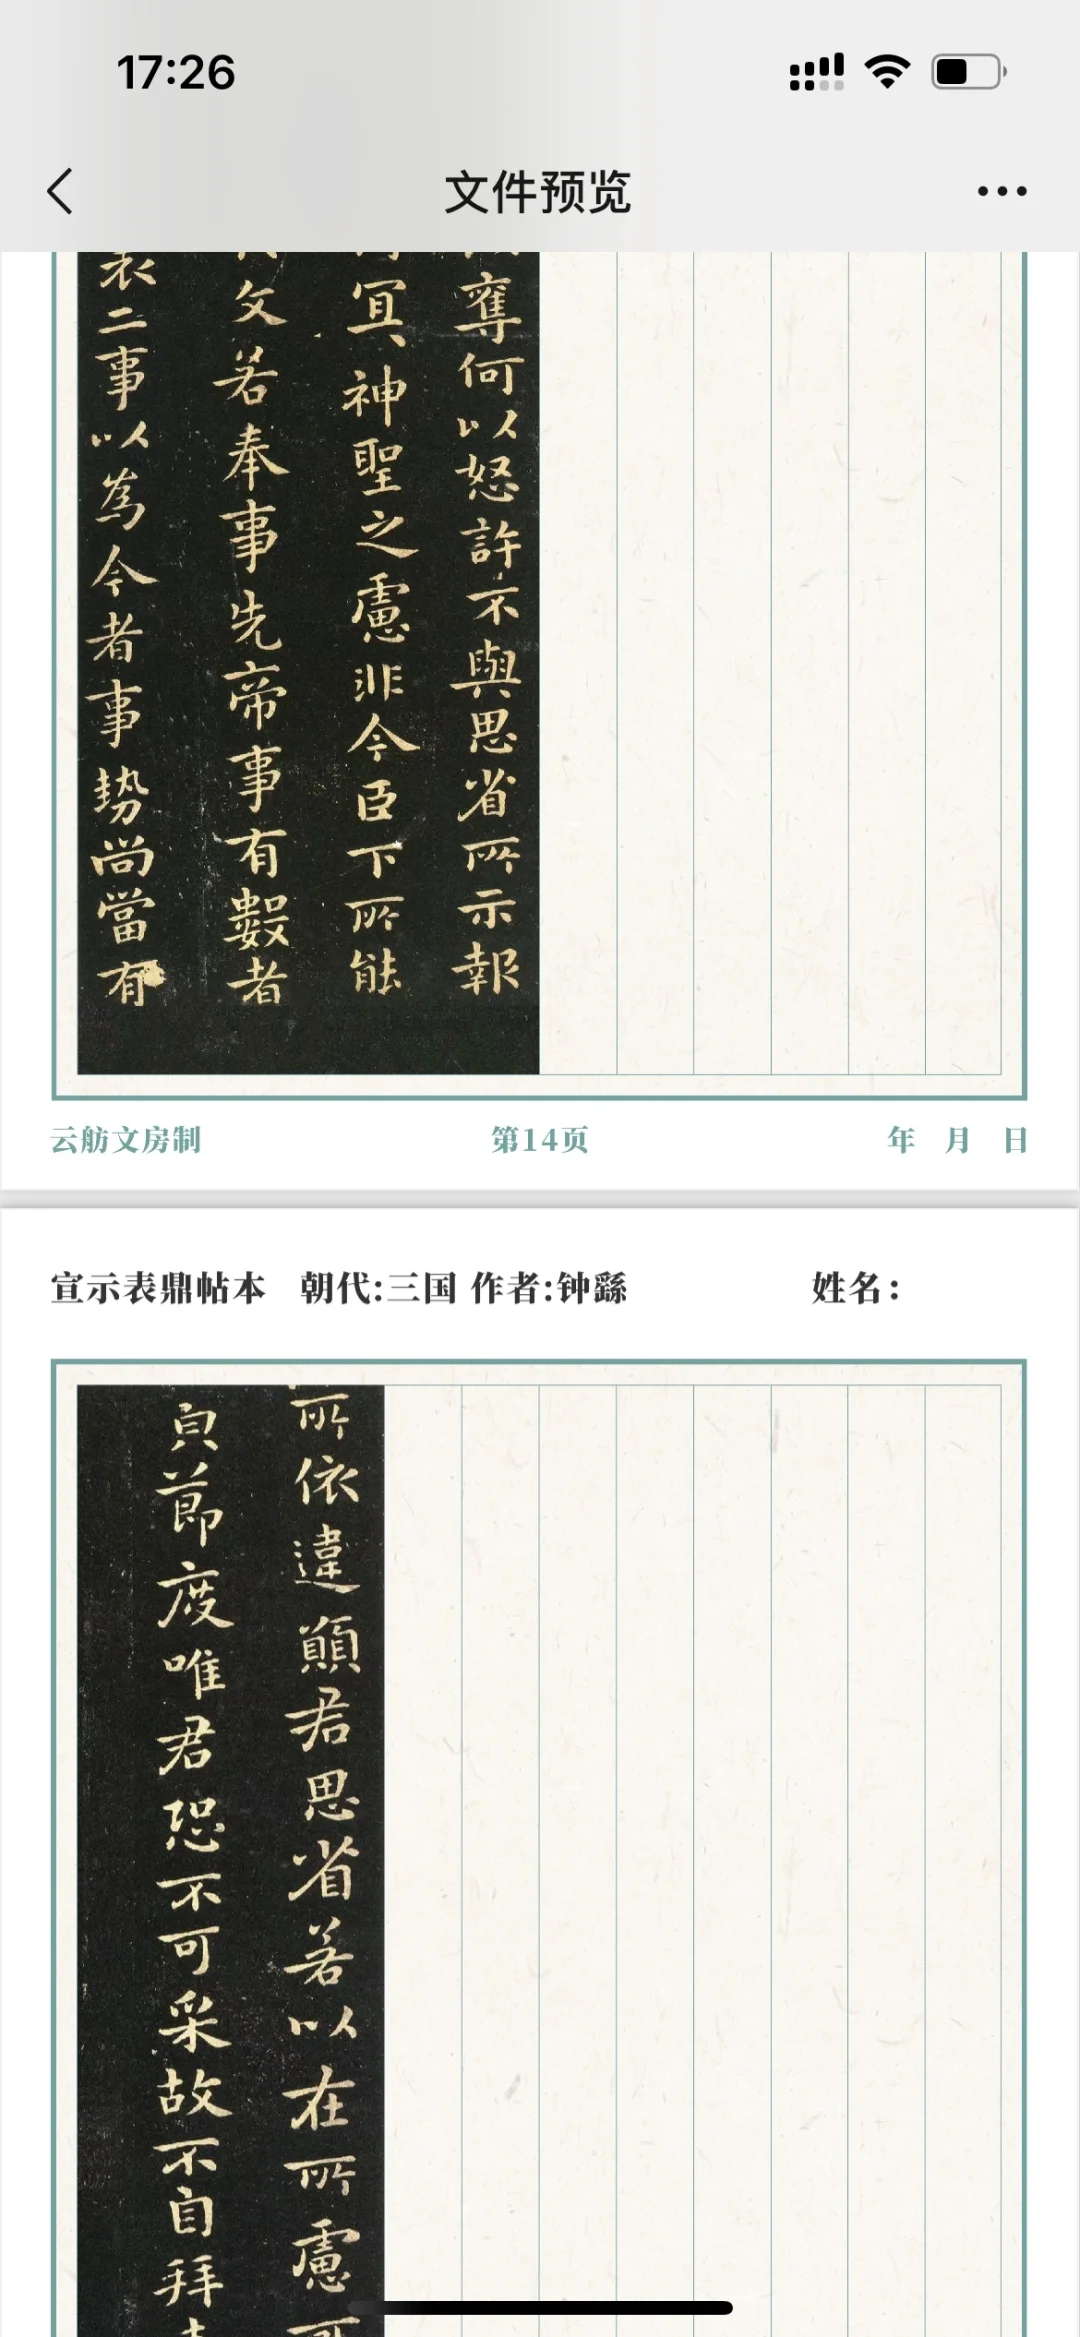 17:26
文件预览
奪何以怒許不與思省所示報
冥神聖之慮非今臣下所能
文若奉事先帝事有數者
表二事以為今者事势尚當有
云舫文房制 第14页 年 月 日
宣示表鼎帖本 朝代:三国 作者:钟繇 姓名:
所依違顛君思省若以在所慮可
貞節度唯君恐不可采故不自拜